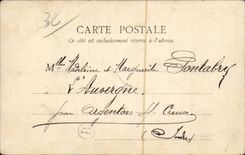 36
CARTE POSTALE
Ce côté est exclusivement réservé à l'adresse
Mlles Madeleine et Marguerite
L'Auvergne
par Argenton s/ Creuse
B
Indre